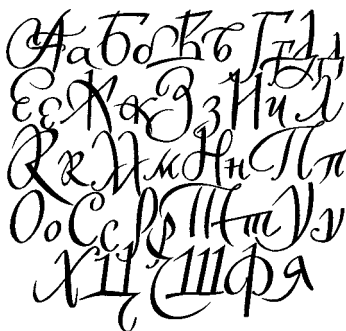 АаБбВвГгДд
ЕеЖжЗзИиЛ
КкМмНнПп
ОоСсРрТтУу
ХЦШФЯ